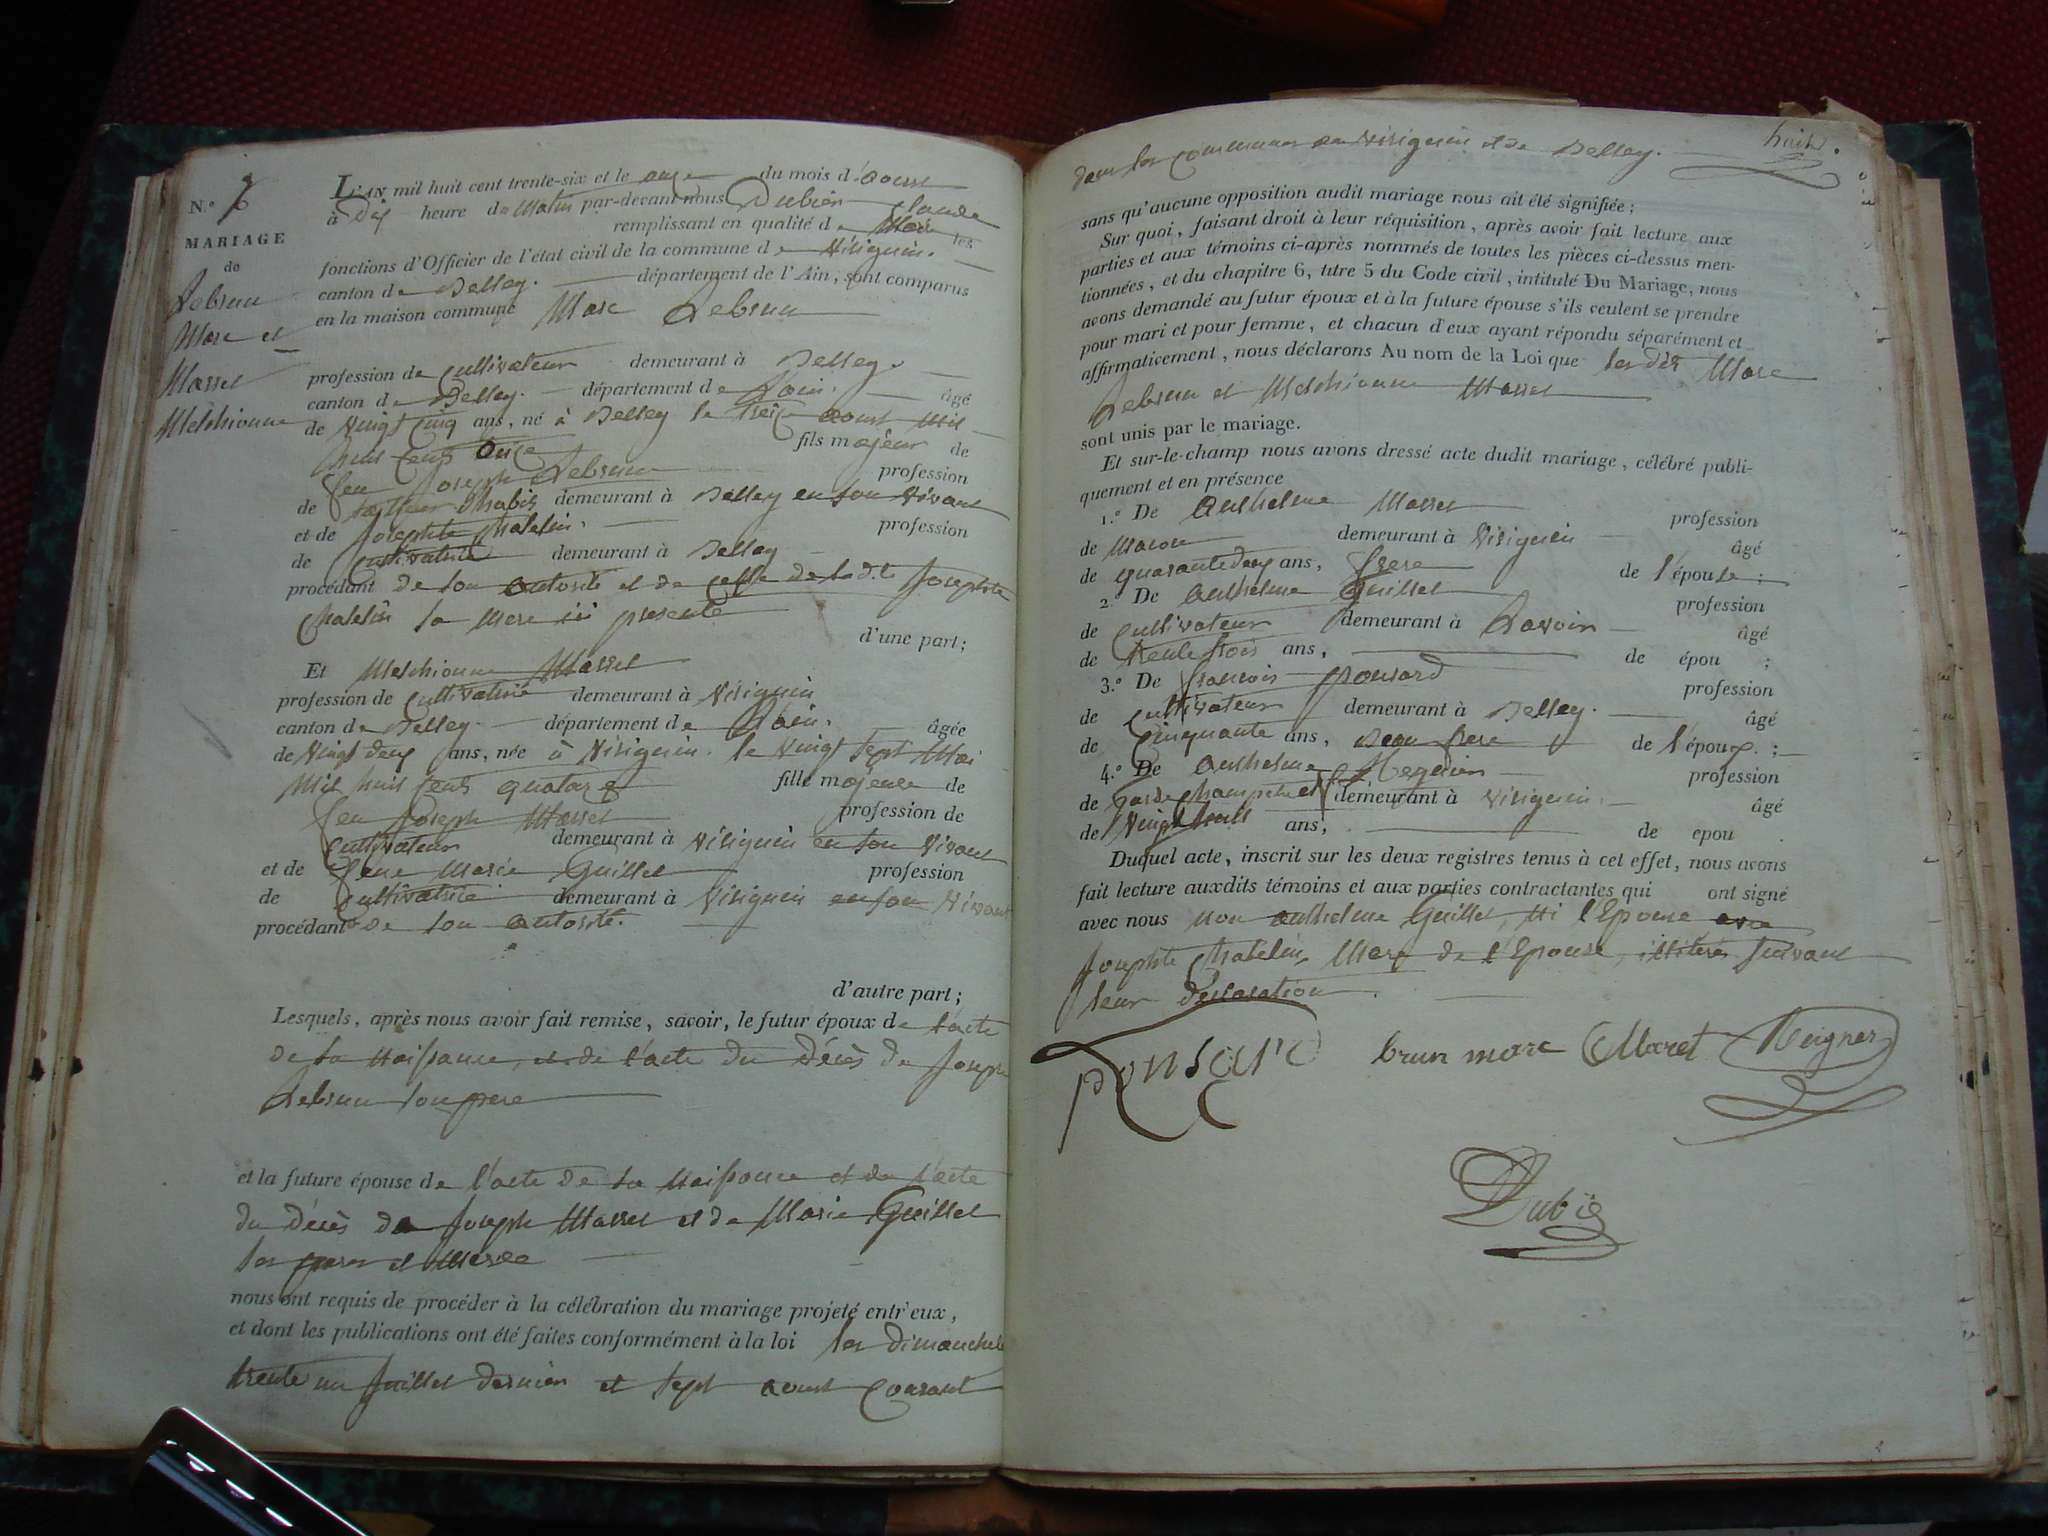 N.o 7
MARIAGE
de
Lebrun
Marc et
Marret
Melchionne
L'AN mil huit cent trente-six et le onze du mois d'aoust
à Dix heure de Matin par-devant nous Dubien Claude
remplissant en qualité de Maire les
fonctions d'Officier de l'état civil de la commune de Virignin.
canton de Belley. département de l'Ain, sont comparus
en la maison commune Marc Lebrun
profession de cultivateur demeurant à Belley.
canton de Belley. département de L'ain. âgé
de Vingt Cinq ans, né à Belley le treize aoust Mil
huit Cent Onze fils majeur de
feu Joseph Lebrun profession
de tailleur d'habis demeurant à Belley en son vivant
et de Josephte Chatelin. profession
de Cultivatrice demeurant à Belley
procédant de son autorité et de celle de ladte Josephte
Chatelin sa Mere ici presente
d'une part;
Et Melchionne Marret
profession de cultivatrice demeurant à Virignin
canton de Belley. département de L'ain. âgée
de Vingt deux ans, née à Virignin. le Vingt Sept Mai
Mil huit Cent quatorze fille majeure de
feu Joseph Marret profession de
Cultivateur demeurant à Virignin en son Vivant
et de feue Marie Guillet profession
de cultivatrice demeurant à Virignin en son Vivant
procédant de son autorité.
d'autre part;
Lesquels, après nous avoir fait remise, savoir, le futur époux de l'acte
de sa Naissance, et de l'acte du Décès de Joseph
Lebrun son pere
et la future épouse de l'acte de sa Naissance et de l'acte
du Décès de Joseph Marret et de Marie Guillet
ses peres et Meres
nous ont requis de procéder à la célébration du mariage projeté entr'eux,
et dont les publications ont été faites conformément à la loi les dimanches
trente un Juillet dernier et Sept aoust Courant
dans les communes de Virignin et de Belley. huit.
sans qu'aucune opposition audit mariage nous ait été signifiée;
Sur quoi, faisant droit à leur réquisition, après avoir fait lecture aux
parties et aux témoins ci-après nommés de toutes les pièces ci-dessus men-
tionnées, et du chapitre 6, titre 5 du Code civil, intitulé Du Mariage, nous
avons demandé au futur époux et à la future épouse s'ils veulent se prendre
pour mari et pour femme, et chacun d'eux ayant répondu séparément et
affirmativement, nous déclarons Au nom de la Loi que les dits Marc
Lebrun et Melchionne Marret
sont unis par le mariage.
Et sur-le-champ nous avons dressé acte dudit mariage, célébré publi-
quement et en présence
1.o De Anthelme Marret profession
de Macon demeurant à Virignin âgé
de quarante deux ans, frere de l'épouse;
2.o De Anthelme Guillet profession
de Cultivateur demeurant à Lavoir âgé
de trente trois ans, de épou ;
3.o De francois Ponsard profession
de Cultivateur demeurant à Belley. âgé
de Cinquante ans, Beau frere de l'époux. ;
4.o De Anthelme profession
de garde champetre demeurant à Virignin. âgé
de Vingt huit ans, de epou .
Duquel acte, inscrit sur les deux registres tenus à cet effet, nous avons
fait lecture auxdits témoins et aux parties contractantes qui ont signé
avec nous non anthelme Guillet, Ni l'Epouse
Josephte Chatelin, Mere de l'Epouse, illiterés suivant
leur déclaration.
ponsard brun marc Maret
Dubie